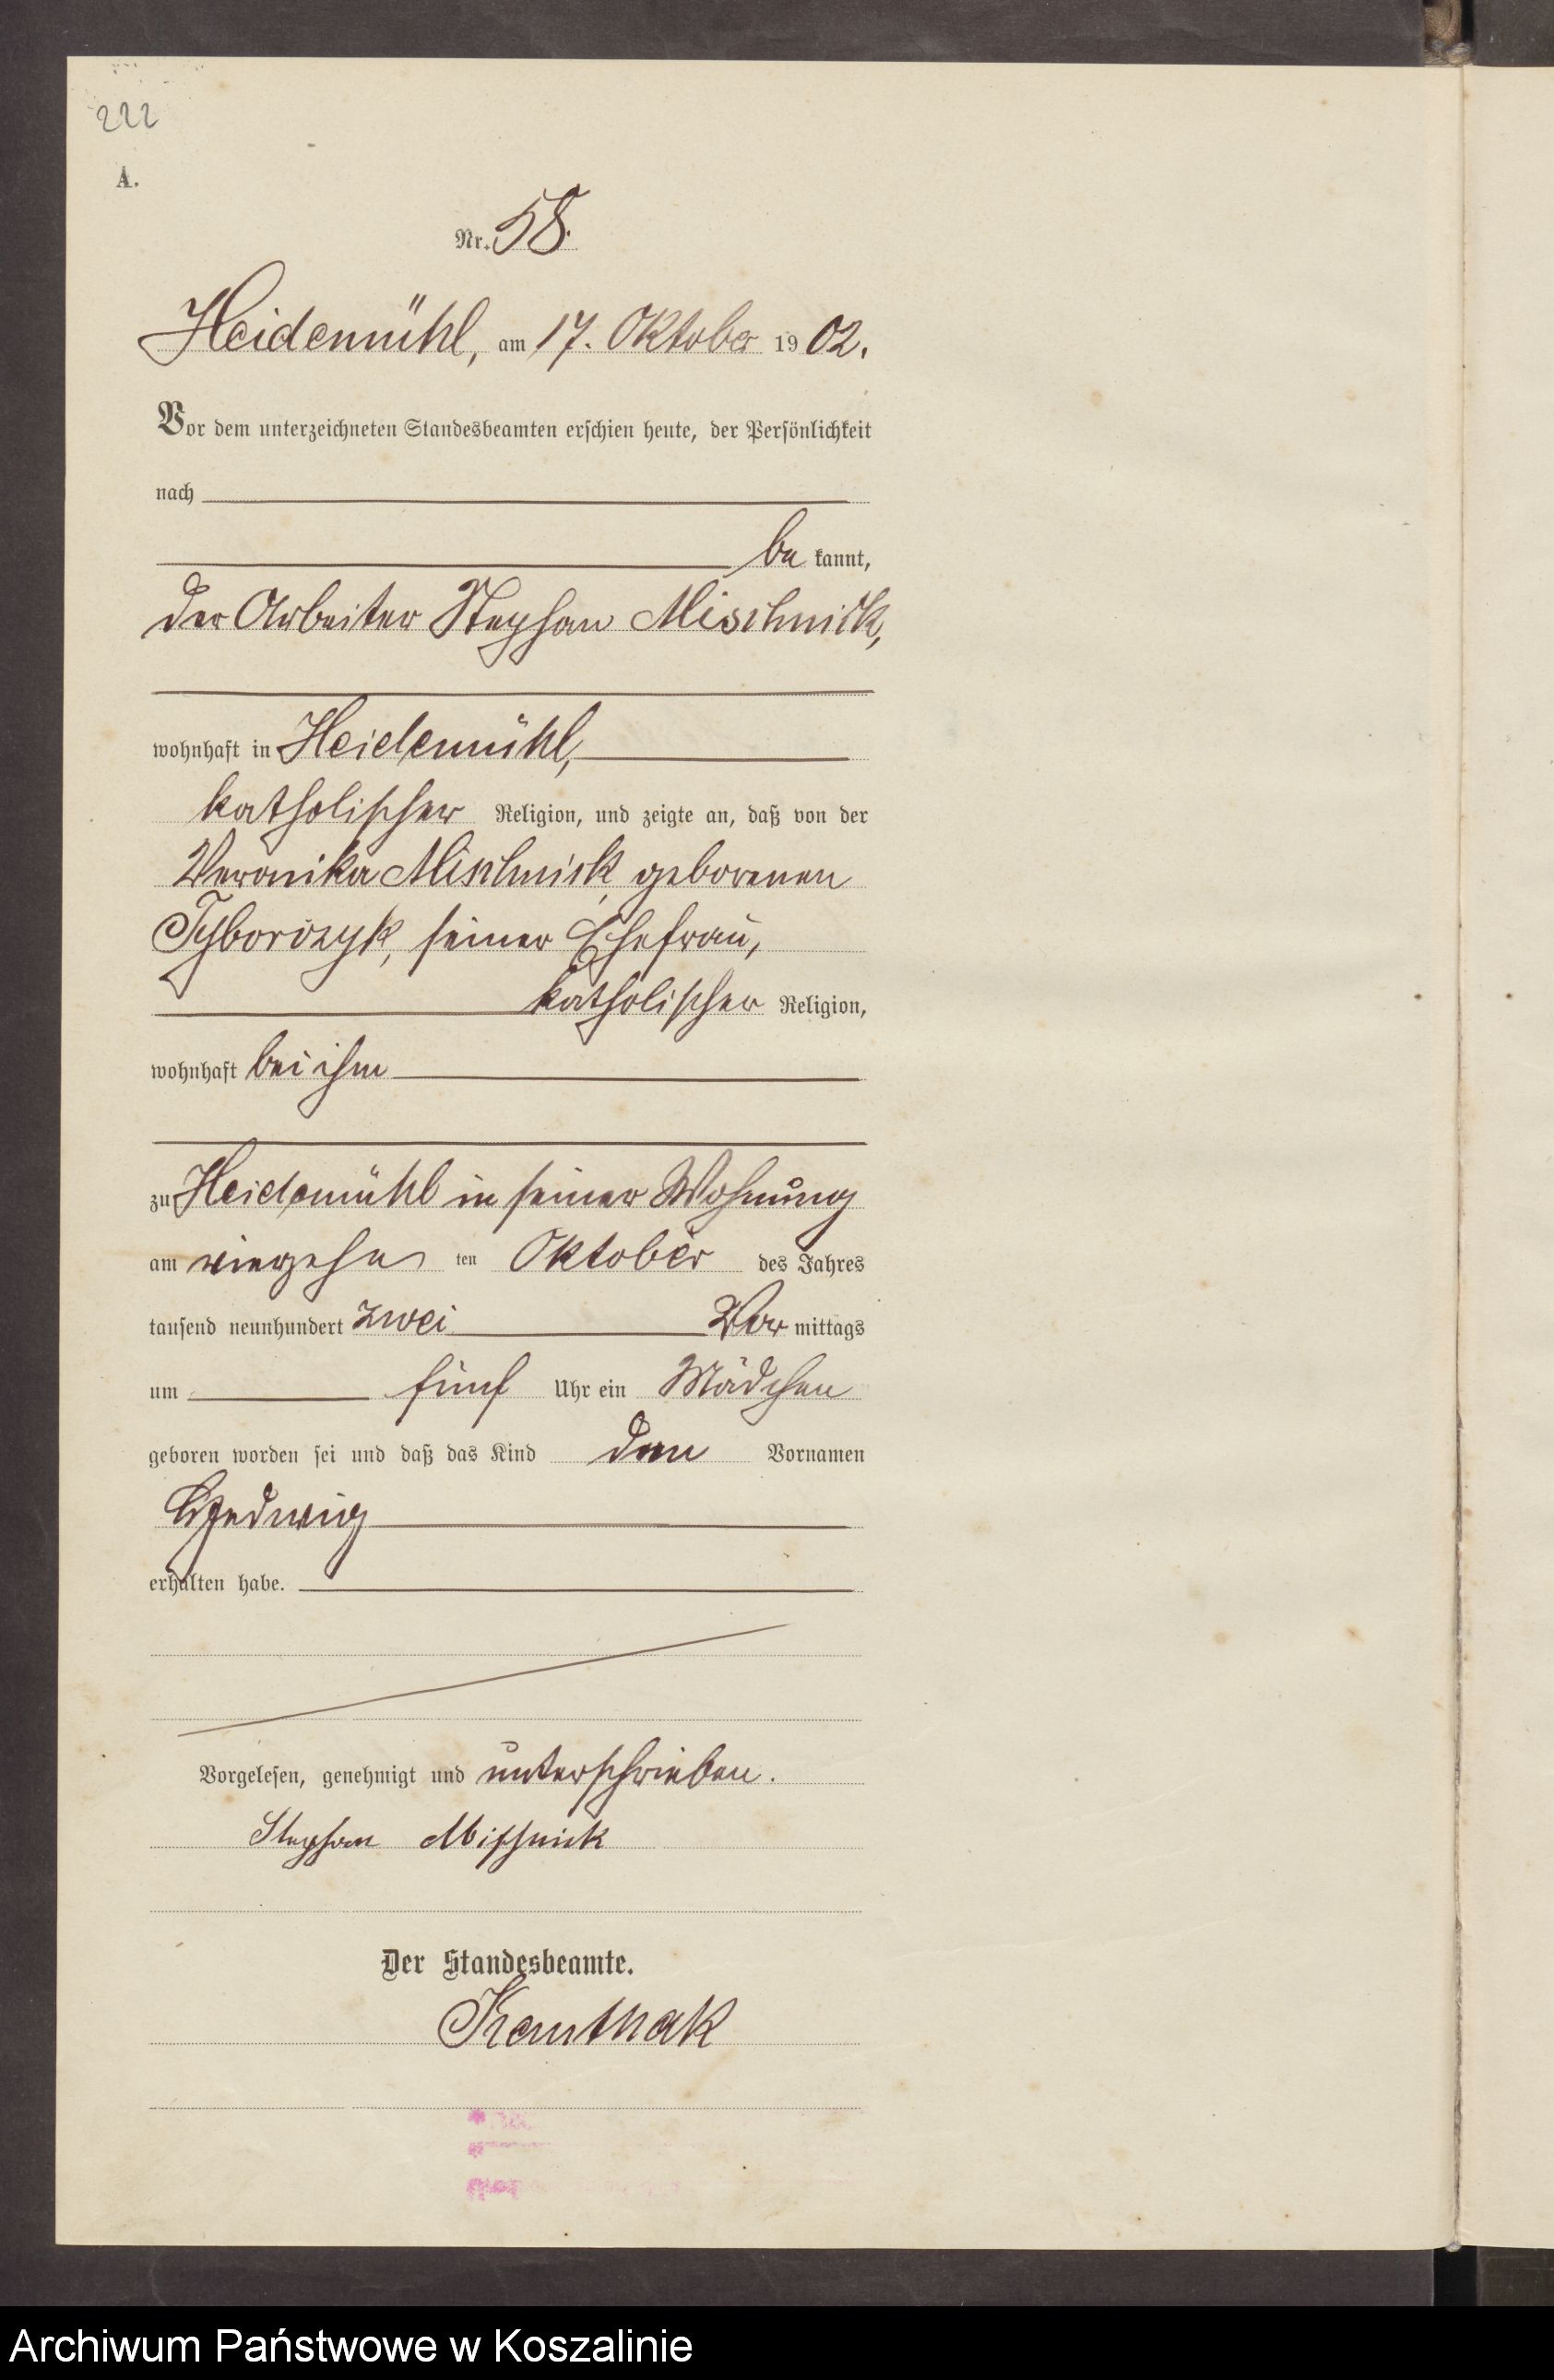 222
A.
Nr. 58.
Heidemühl, am 17. Oktober 1902.
Vor dem unterzeichneten Standesbeamten erschien heute, der Persönlichkeit
nach
be kannt,
der Arbeiter Stephan Mischnick,
wohnhaft in Heidemühl,
katholischer Religion, und zeigte an, daß von der
Veronika Mischnick geborenen
Tyborczyk, seiner Ehefrau,
katholischer Religion,
wohnhaft bei ihm
zu Heidemühl in seiner Wohnung
am vierzehn ten Oktober des Jahres
tausend neunhundert zwei Vor mittags
um fünf Uhr ein Mädchen
geboren worden sei und daß das Kind den Vornamen
Hedwig
erhalten habe.
Vorgelesen, genehmigt und unterschrieben.
Stephan Mischnick
Der Standesbeamte.
Archiwum Państwowe w Koszalinie